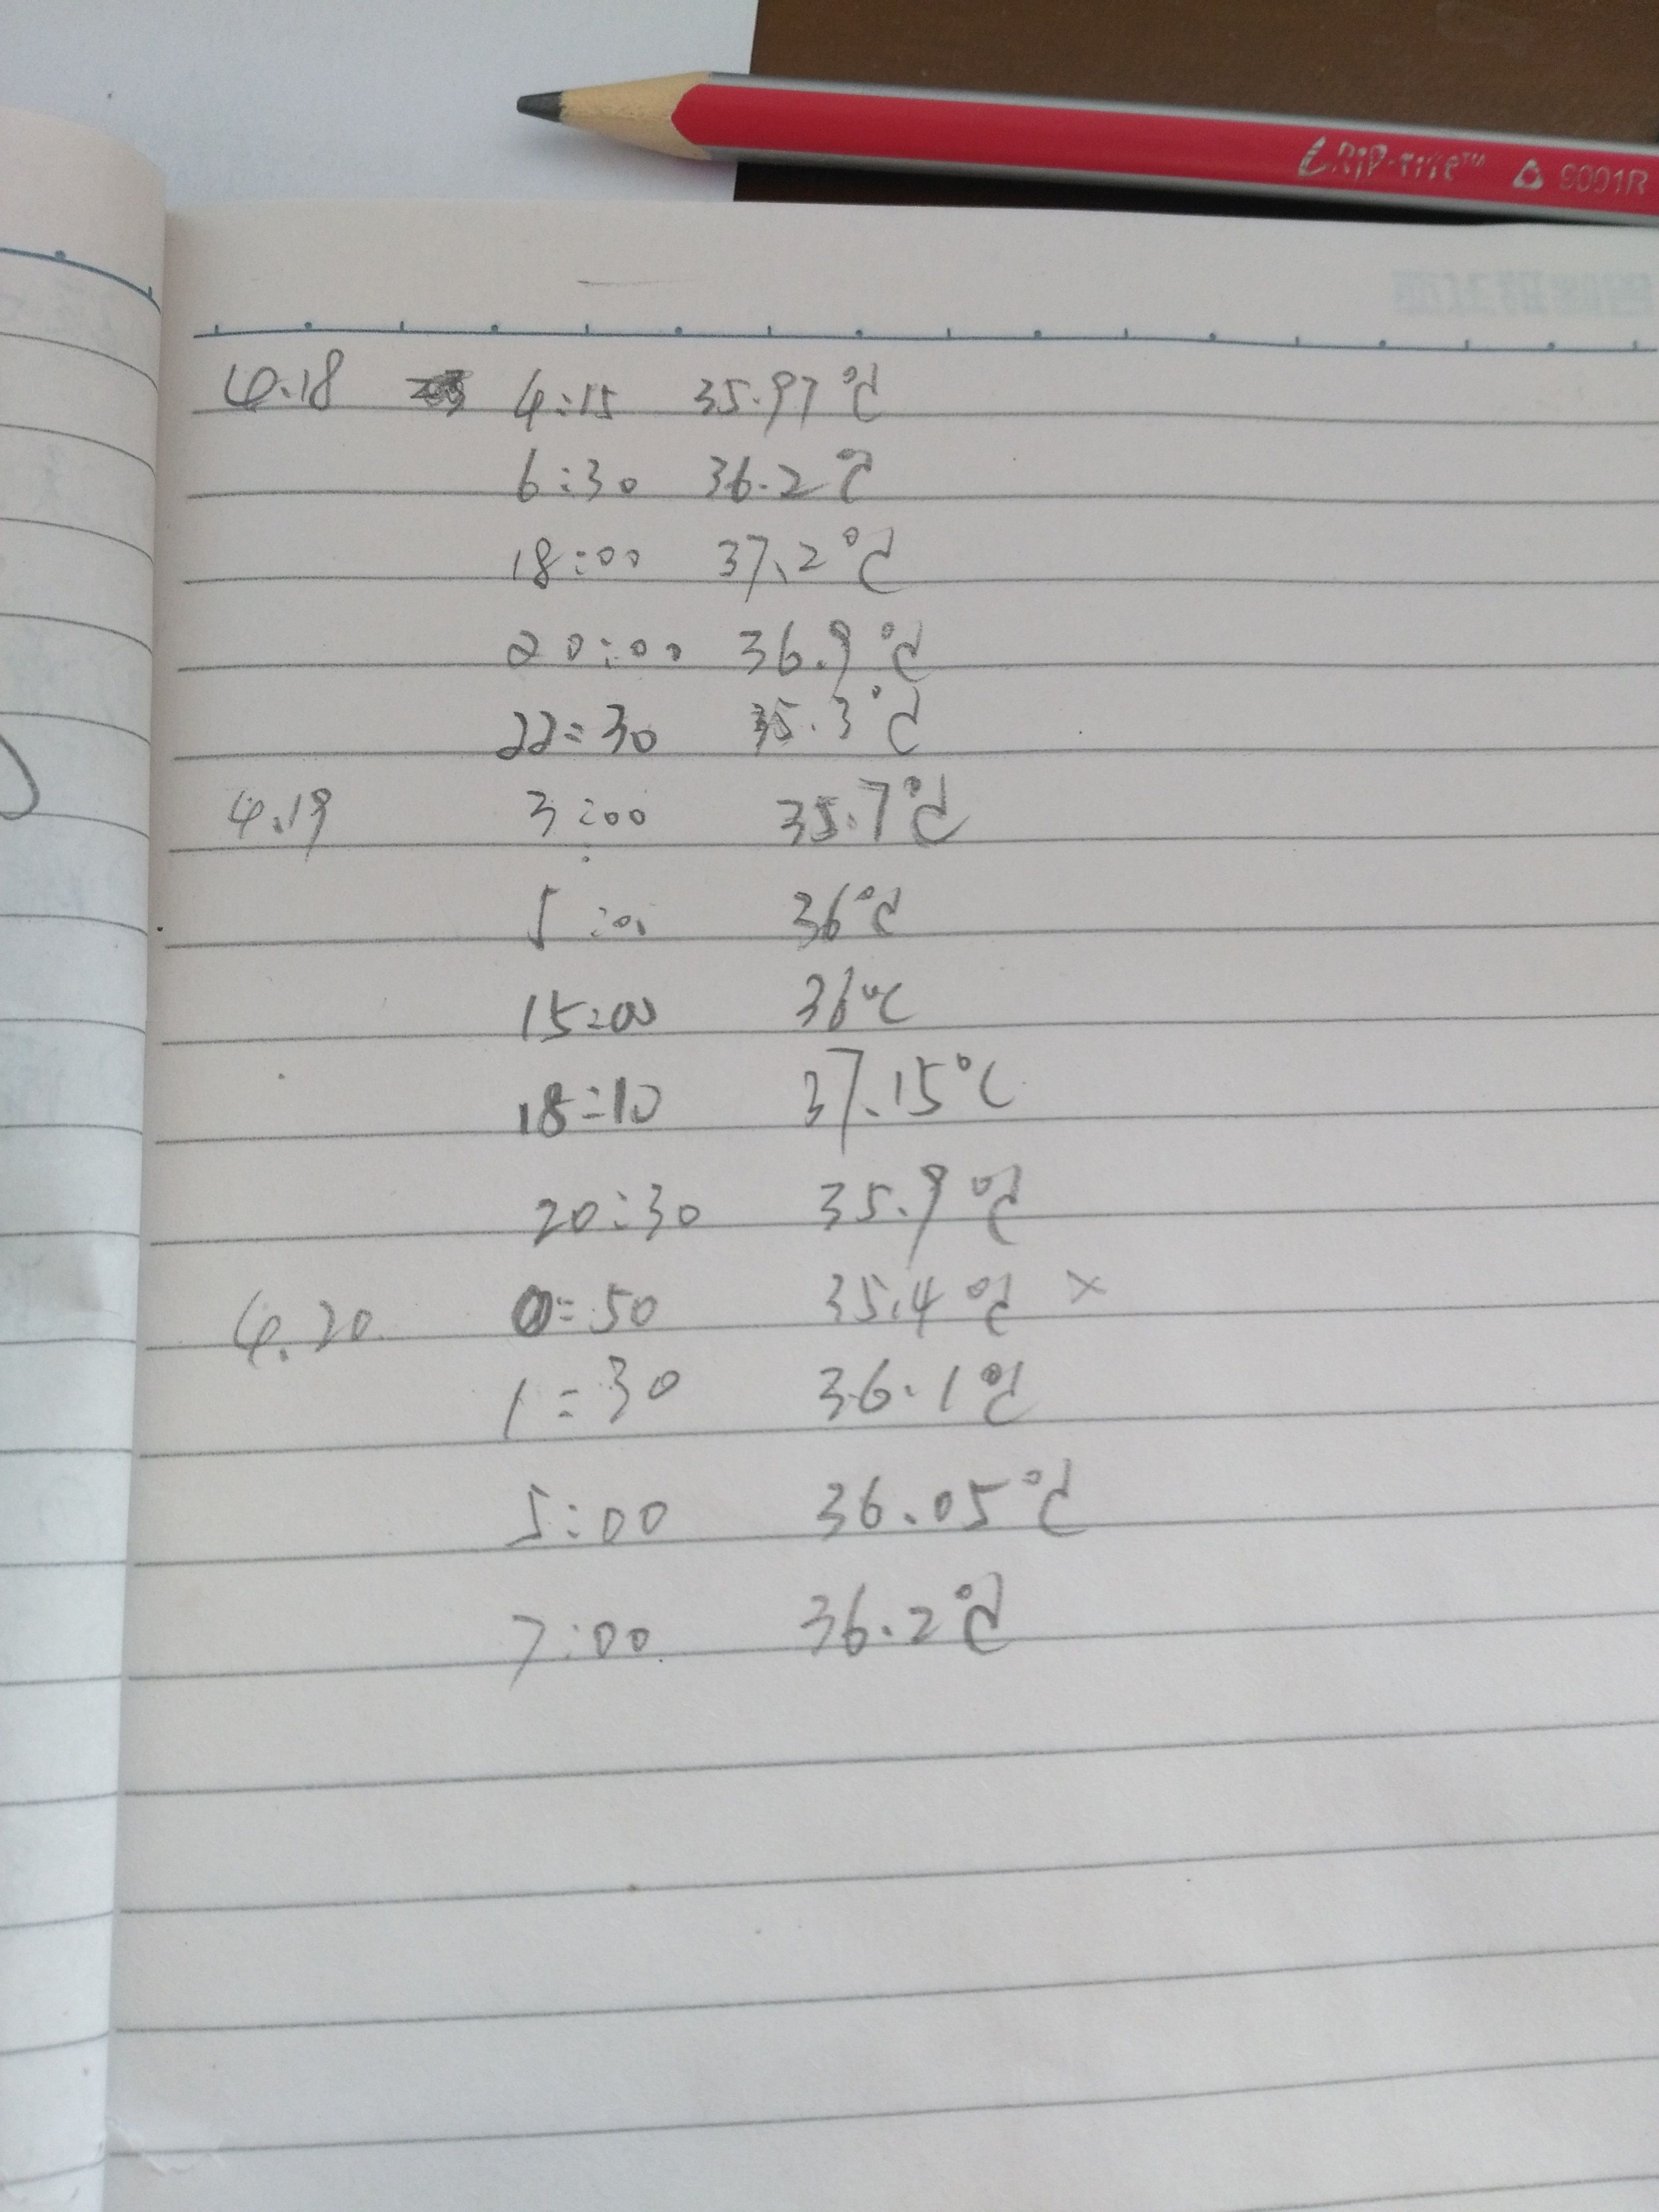 GRIP-TITE™ 9001R
4.18 4:15 35.97℃
6:30 36.2℃
18:00 37.2℃
20:00 36.9℃
22:30 35.3℃
4.19 3:00 35.7℃
5:00 36℃
15:00 36℃
18:10 37.15℃
20:30 35.9℃
4.20 0:50 35.4℃ ×
1:30 36.1℃
5:00 36.05℃
7:00 36.2℃